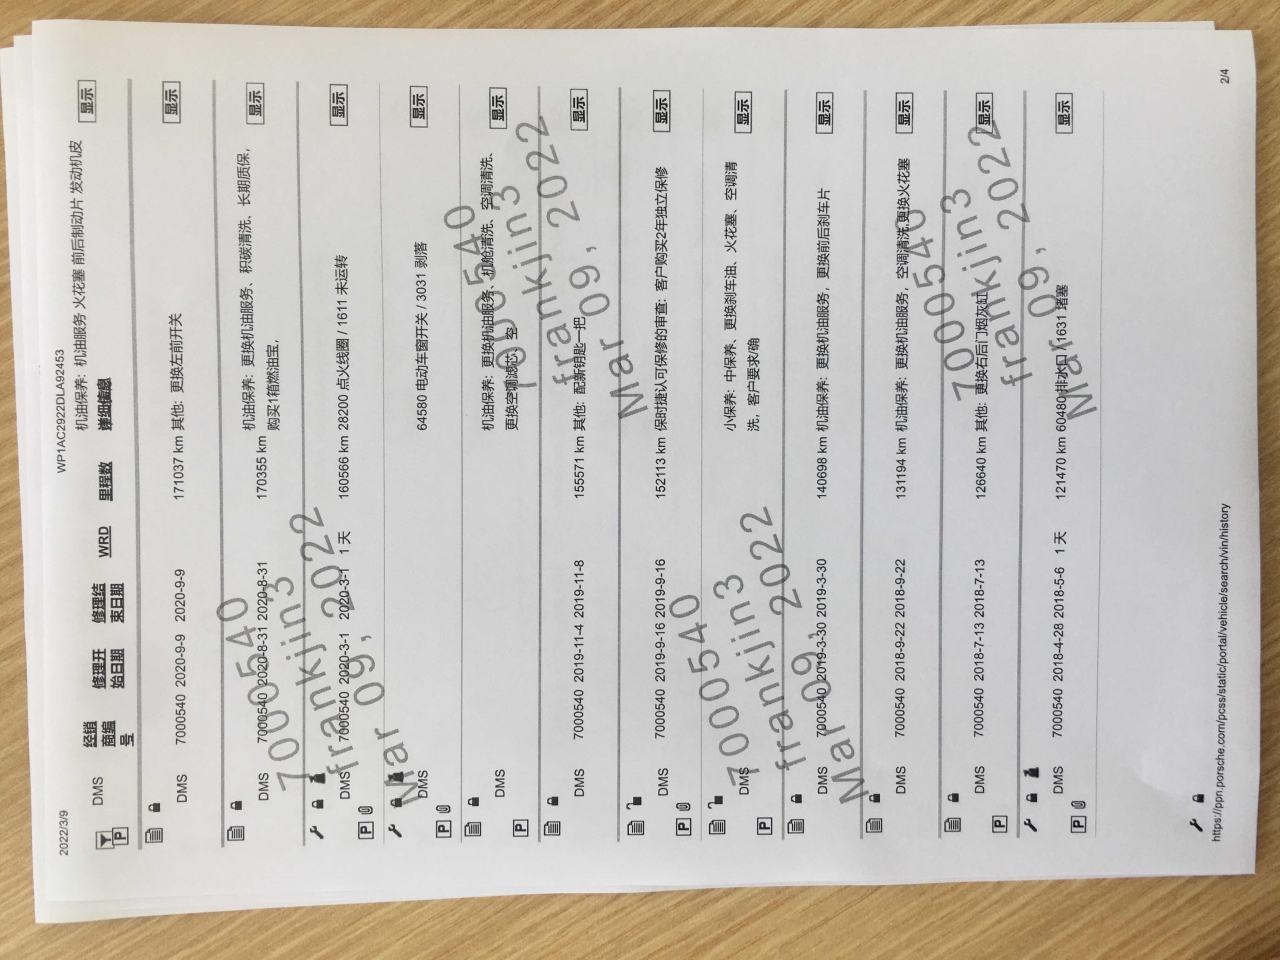 2022/3/9
WP1AC2922DLA92453
DMS
经销商编号
修理开始日期
修理结束日期
WRD
里程数
详细信息
机油保养: 机油服务 火花塞 前后制动片 发动机皮
显示
DMS 7000540 2020-9-9 2020-9-9 171037 km 其他: 更换左前开关 显示
DMS 7000540 2020-8-31 2020-8-31 170355 km 机油保养: 更换机油服务、积碳清洗、长期质保, 显示
购买1箱燃油宝,
DMS 7000540 2020-3-1 2020-3-1 1 天 160566 km 28200 点火线圈 / 1611 未运转 显示
DMS 64580 电动车窗开关 / 3031 剥落 显示
DMS 机油保养: 更换机油服务、机舱清洗、空调清洗、 显示
更换空调滤芯, 空
DMS 7000540 2019-11-4 2019-11-8 155571 km 其他: 配新钥匙一把 显示
DMS 7000540 2019-9-16 2019-9-16 152113 km 保时捷认可保修的审查: 客户购买2年独立保修 显示
DMS 小保养: 中保养、更换刹车油、火花塞、空调清 显示
洗, 客户要求/确
7000540 2019-3-30 2019-3-30 140698 km 机油保养: 更换机油服务, 更换前后刹车片 显示
DMS 7000540 2018-9-22 2018-9-22 131194 km 机油保养: 更换机油服务, 空调清洗,更换火花塞 显示
DMS 7000540 2018-7-13 2018-7-13 126640 km 其他: 更换右后门烟灰缸 显示
DMS 7000540 2018-4-28 2018-5-6 1 天 121470 km 60480 排水口 / 1631 堵塞 显示
7000540
frankjin3
Mar 09, 2022
7000540
frankjin3
Mar 09, 2022
7000540
frankjin3
Mar 09, 2022
7000540
frankjin3
Mar 09, 2022
https://ppn.porsche.com/pcss/static/portal/vehicle/search/vin/history
2/4